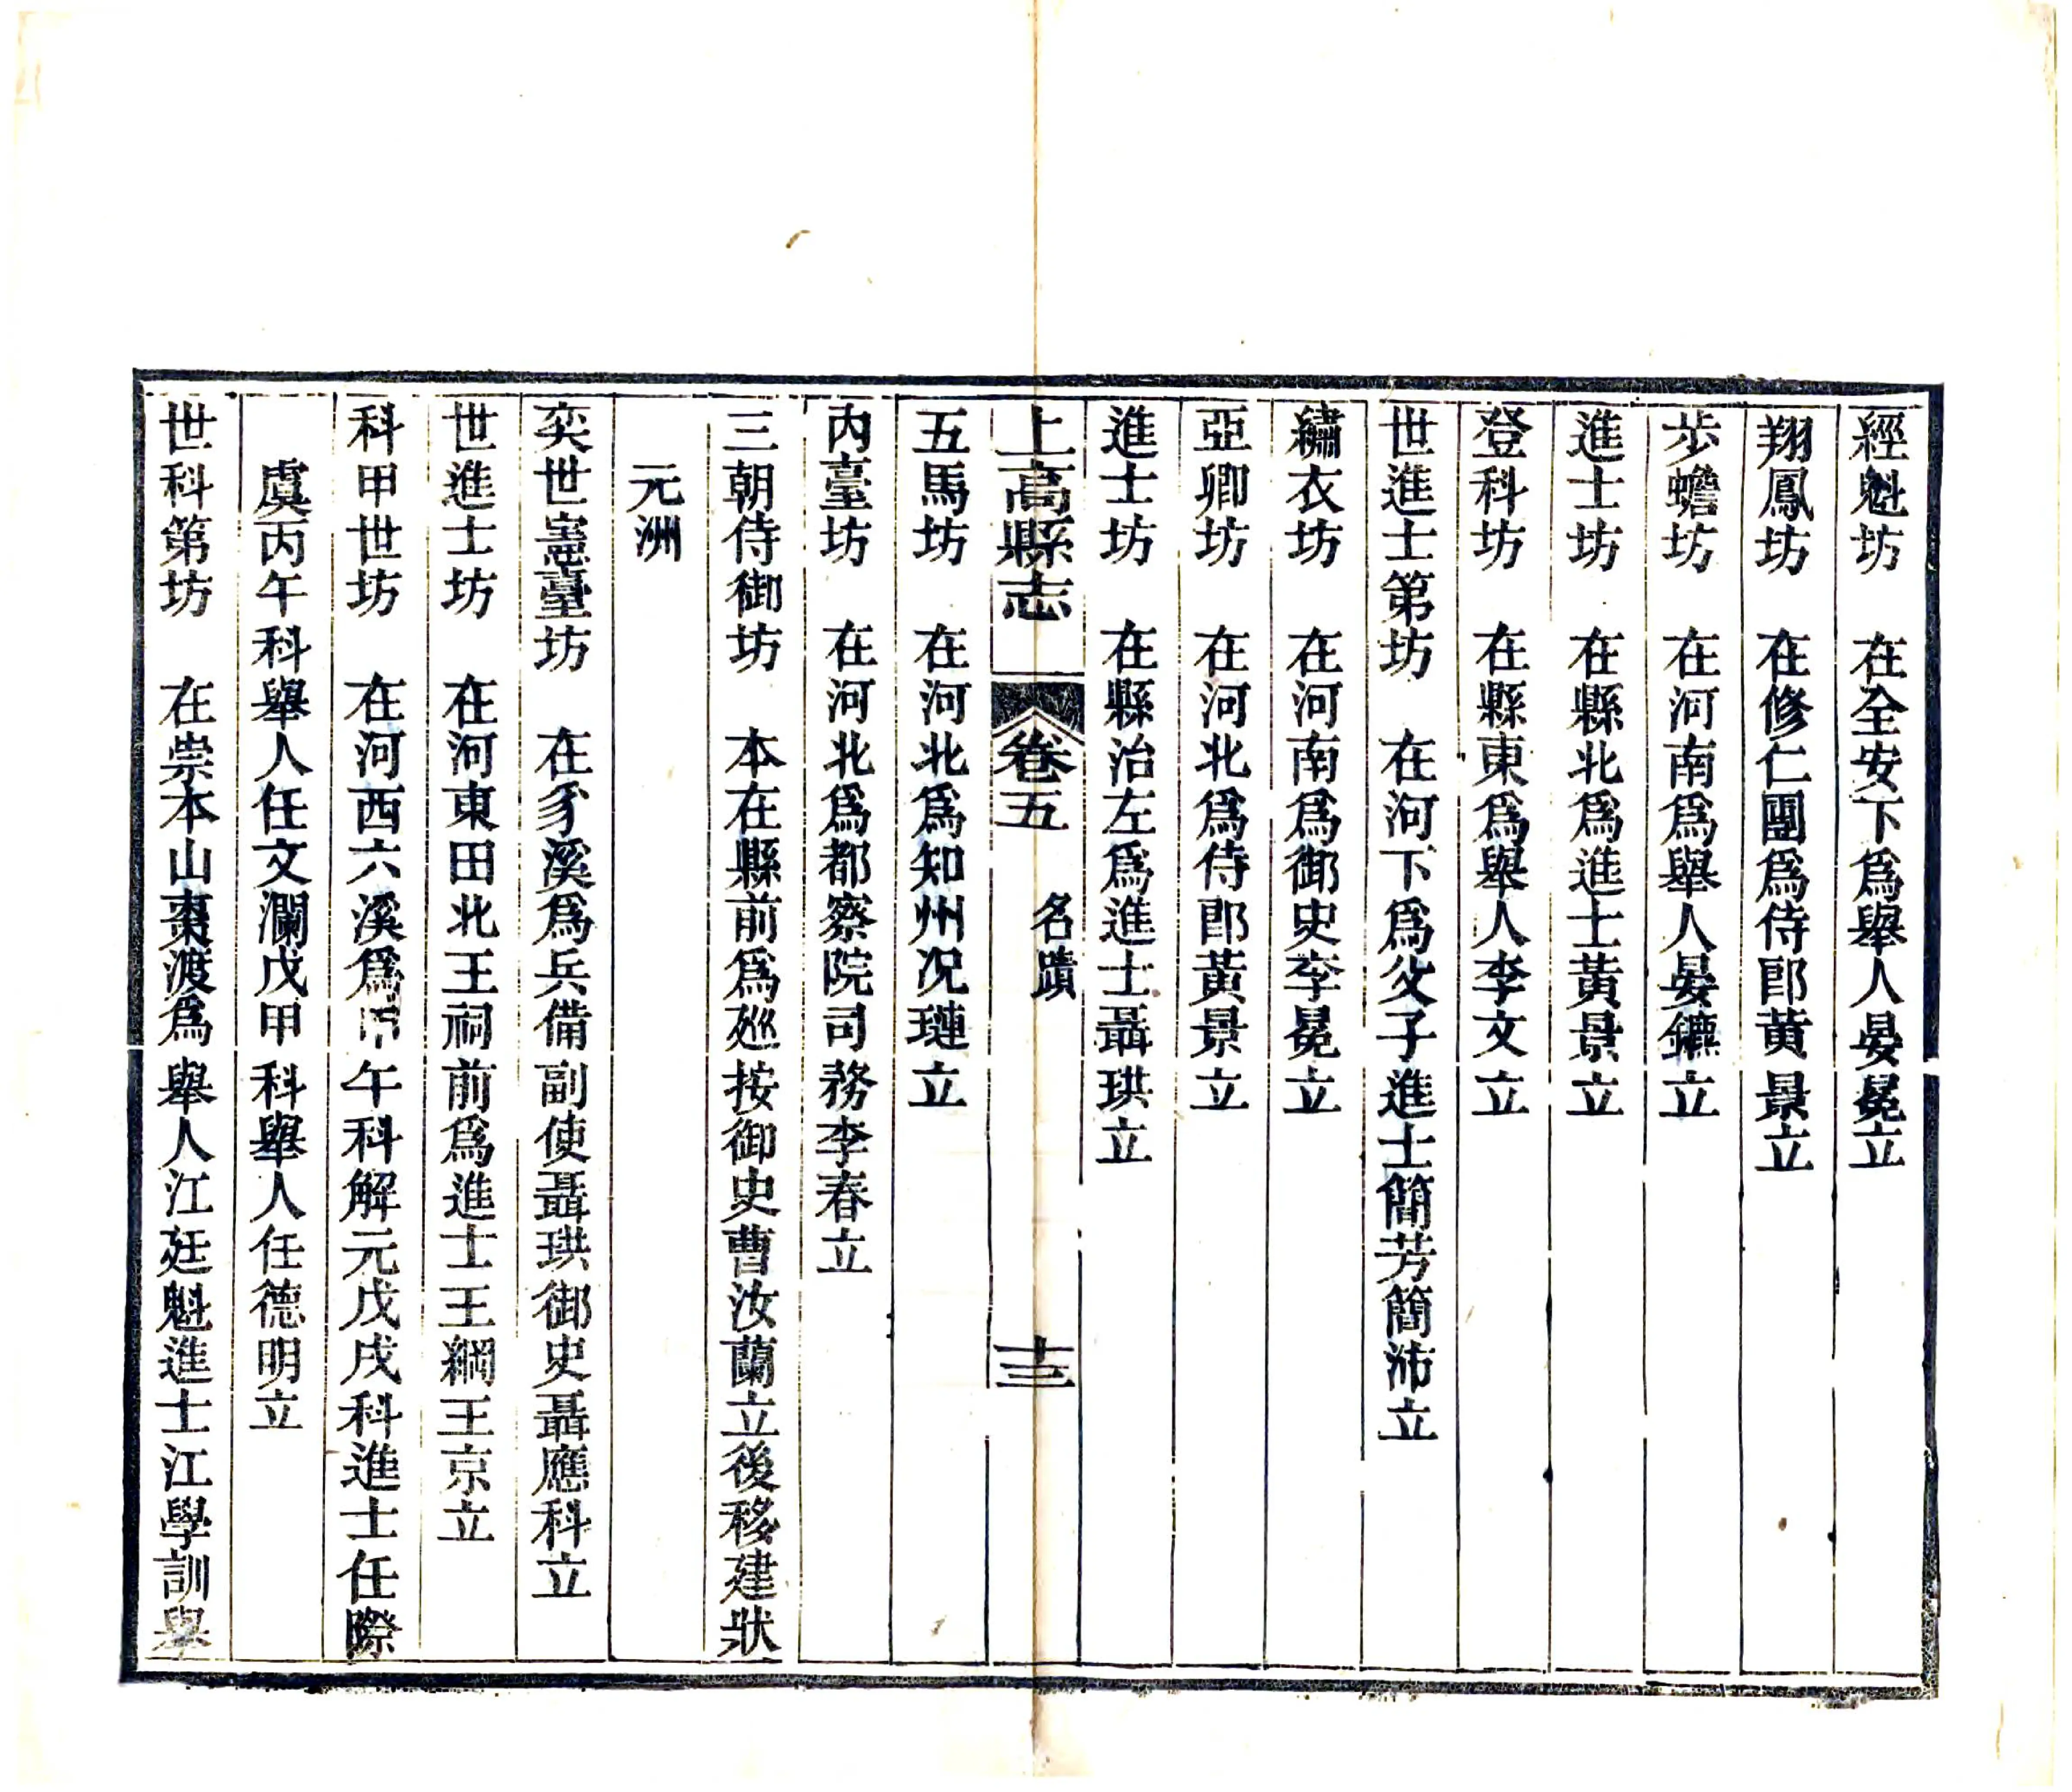 經魁坊　在全安下爲舉人晏冕立
翔鳳坊　在修仁團爲侍郎黃景立
步蟾坊　在河南爲舉人晏鑣立
進士坊　在縣北爲進士黃景立
登科坊　在縣東爲舉人李文立
世進士第坊　在河下爲父子進士簡芳簡沛立
繡衣坊　在河南爲御史李冕立
亞卿坊　在河北爲侍郎黃景立
進士坊　在縣治左爲進士聶珙立
上高縣志　卷五　名蹟　十三
五馬坊　在河北爲知州况璉立
内臺坊　在河北爲都察院司務李春立
三朝侍御坊　本在縣前爲廵按御史曹汝蘭立後移建狀
元洲
奕世憲臺坊　在豸溪爲兵備副使聶珙御史聶應科立
世進士坊　在河東田北王祠前爲進士王綱王京立
科甲世坊　在河西六溪爲甲午科解元戊戌科進士任際
虞丙午科舉人任文瀾戊甲科舉人任德明立
世科第坊　在崇本山棗渡爲舉人江廷魁進士江學訓舉